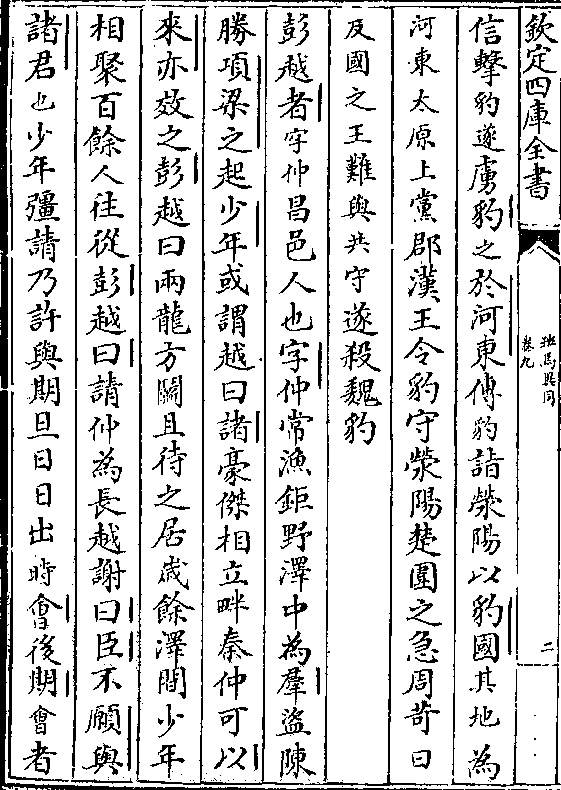 欽定四庫全書
班馬異同
卷九
二
信擊豹遂虜豹之於河東傳豹詣滎陽以豹國其地為
河東太原上黨郡漢王令豹守滎陽楚圍之急周苛曰
反國之王難與共守遂殺魏豹
彭越者字仲昌邑人也字仲常漁鉅野澤中為羣盜陳
勝項梁之起少年或謂越曰諸豪傑相立畔秦仲可以
來亦效之彭越曰兩龍方鬬且待之居歲餘澤間少年
相聚百餘人往從彭越曰請仲為長越謝曰臣不願與
諸君也少年彊請乃許與期旦日日出時會後期會者